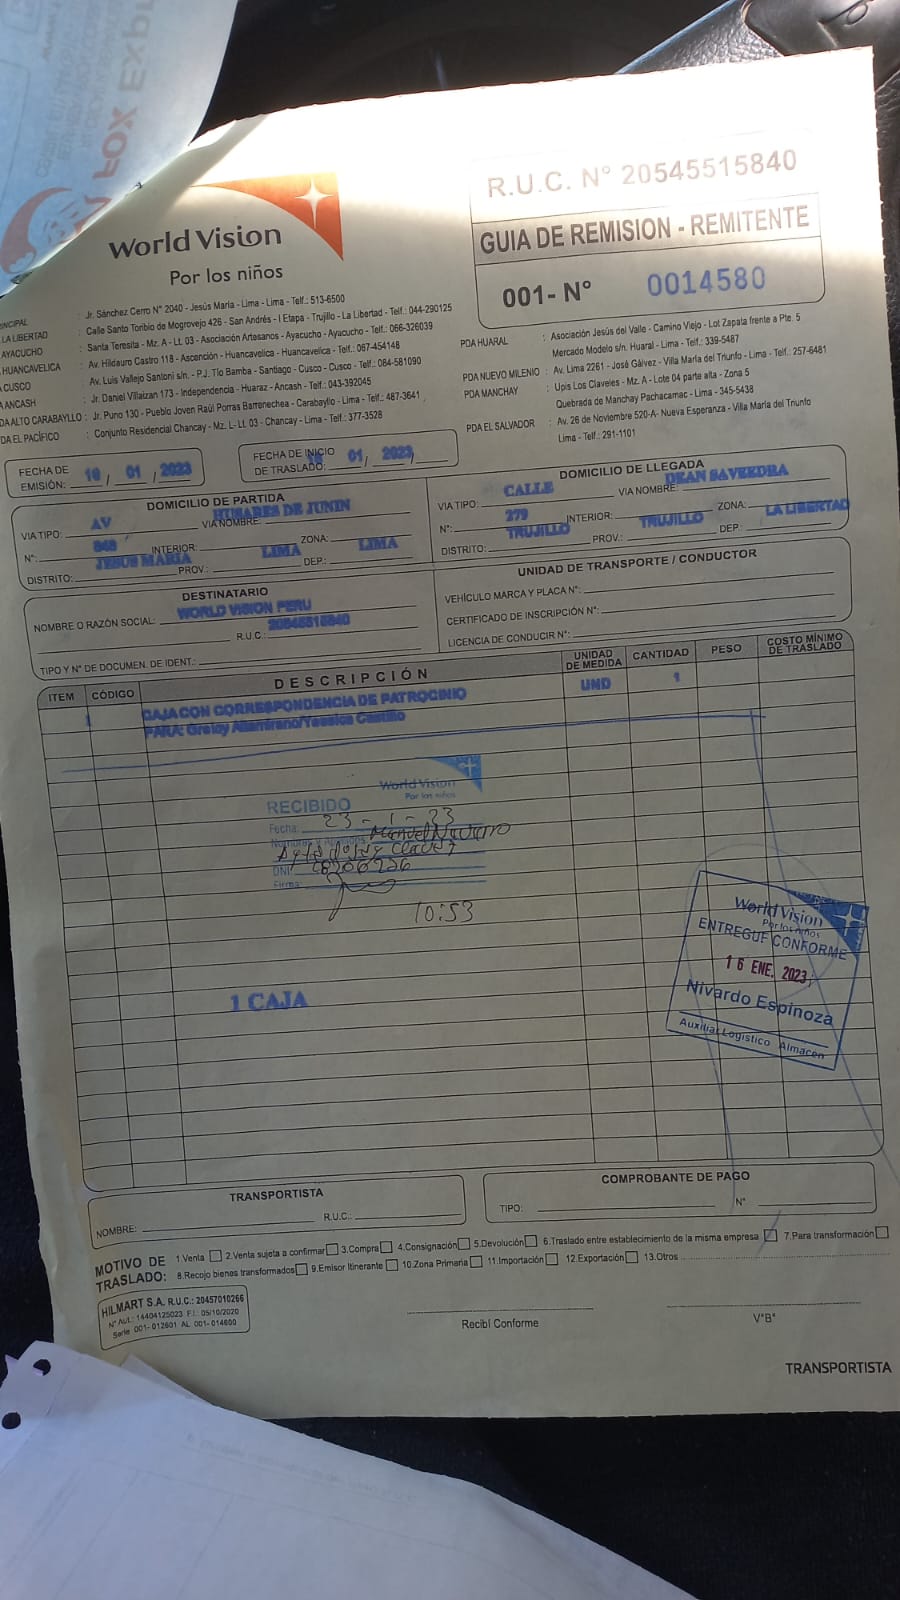 FOX EXPR
World Vision
Por los niños
R.U.C. N° 20545515840
GUIA DE REMISION - REMITENTE
001- N° 0014580
INCIPAL : Jr. Sánchez Cerro N° 2040 - Jesús María - Lima - Lima - Telf.: 513-6500
LA LIBERTAD : Calle Santo Toribio de Mogrovejo 426 - San Andrés - I Etapa - Trujillo - La Libertad - Telf.: 044-290125
AYACUCHO : Santa Teresita - Mz. A - Lt. 03 - Asociación Artesanos - Ayacucho - Ayacucho - Telf.: 066-326039
HUANCAVELICA : Av. Hildauro Castro 118 - Ascención - Huancavelica - Huancavelica - Telf.: 067-454148
CUSCO : Av. Luis Vallejo Santoni s/n. - P.J. Tío Bamba - Santiago - Cusco - Cusco - Telf.: 084-581090
ANCASH : Jr. Daniel Villaizan 173 - Independencia - Huaraz - Ancash - Telf.: 043-392045
DA ALTO CARABAYLLO : Jr. Puno 130 - Pueblo Joven Raúl Porras Barrenechea - Carabayllo - Lima - Telf.: 487-3641
DA EL PACÍFICO : Conjunto Residencial Chancay - Mz. L- Lt. 03 - Chancay - Lima - Telf.: 377-3528
PDA HUARAL : Asociación Jesús del Valle - Camino Viejo - Lot Zapata frente a Pte. 5
Mercado Modelo s/n. Huaral - Lima - Telf.: 339-5487
PDA NUEVO MILENIO : Av. Lima 2261 - José Gálvez - Villa María del Triunfo - Lima - Telf.: 257-6481
PDA MANCHAY : Upis Los Claveles - Mz. A - Lote 04 parte alta - Zona 5
Quebrada de Manchay Pachacamac - Lima - 345-5438
PDA EL SALVADOR : Av. 26 de Noviembre 520-A- Nueva Esperanza - Villa María del Triunfo
Lima - Telf.: 291-1101
FECHA DE EMISIÓN: 16 / 01 / 2023
FECHA DE INICIO DE TRASLADO: 16 01 / 2023
DOMICILIO DE PARTIDA
VIA TIPO: AV VIA NOMBRE: HUSARES DE JUNIN
N°: 848 INTERIOR: ZONA:
DISTRITO: JESUS MARIA PROV.: LIMA DEP.: LIMA
DOMICILIO DE LLEGADA
VIA TIPO: CALLE VIA NOMBRE: DEAN SAVEEDRA
N°: 279 INTERIOR: ZONA:
DISTRITO: TRUJILLO PROV.: TRUJILLO DEP.: LA LIBERTAD
DESTINATARIO
NOMBRE O RAZÓN SOCIAL: WORLD VISION PERU
R.U.C.: 20545515840
TIPO Y N° DE DOCUMEN. DE IDENT.:
UNIDAD DE TRANSPORTE / CONDUCTOR
VEHÍCULO MARCA Y PLACA N°:
CERTIFICADO DE INSCRIPCIÓN N°:
LICENCIA DE CONDUCIR N°:
ITEM CÓDIGO DESCRIPCIÓN UNIDAD DE MEDIDA CANTIDAD PESO COSTO MÍNIMO DE TRASLADO
1 CAJA CON CORRESPONDENCIA DE PATROCINIO UND 1
PARA: Greisy Altamirano/Yessica Castillo
World Vision
Por los niños
RECIBIDO
Fecha: 23 - 1 - 23
Manuel Navarro
DNI:
Firma:
10:53
World Vision
Por los niños
ENTREGUE CONFORME
16 ENE. 2023
Nivardo Espinoza
Auxiliar Logístico Almacen
1 CAJA
TRANSPORTISTA
NOMBRE: R.U.C.:
COMPROBANTE DE PAGO
TIPO: N°
MOTIVO DE TRASLADO:
1.Venta 2.Venta sujeta a confirmar 3.Compra 4.Consignación 5.Devolución 6.Traslado entre establecimiento de la misma empresa 7.Para transformación
8.Recojo bienes transformados 9.Emisor Itinerante 10.Zona Primaria 11.Importación 12.Exportación 13.Otros
HILMART S.A. R.U.C.: 20457010266
N° Aut.: 14404125023 F.I.: 05/10/2020
Serie 001- 012601 AL 001- 014600
Recibí Conforme
V°B°
TRANSPORTISTA